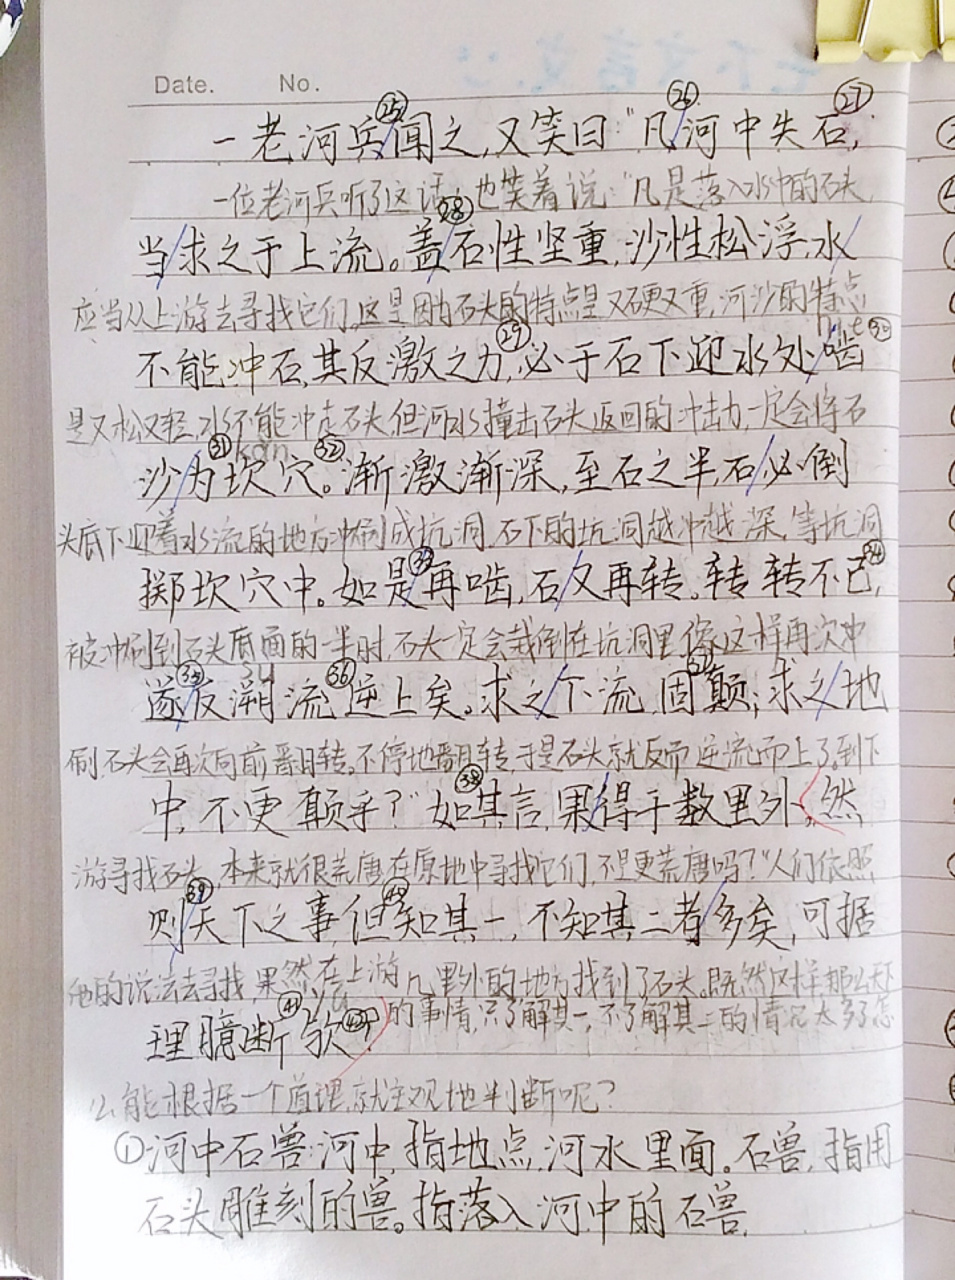 Date. No.
㉕ ㉖ ㉗
一老河兵闻之,又笑曰:"凡河中失石,
一位老河兵听了这话,也笑着说:"凡是落入水中的石头
㉘
当求之于上流。盖石性坚重,沙性松浮,水
应当从上游去寻找它们,这是因为石头的特点是又硬又重,河沙的特点
㉙ niè ㉚
不能冲石,其反激之力,必于石下迎水处啮
是又松又轻,水不能冲走石头,但河水撞击石头返回的冲击力,一定会将石
㉛ kǎn ㉜
沙为坎穴。渐激渐深,至石之半,石必倒
头底下迎着水流的地方冲刷成坑洞,石下的坑洞越冲越深,等坑洞
㉝ ㉞
掷坎穴中。如是再啮,石又再转。转转不已,
被冲刷到石头底面的一半时,石头一定会栽倒在坑洞里像这样再次冲
㉟ sù ㊱ ㊲
遂反溯流逆上矣。求之下流,固颠;求之地
刷,石头会再次向前翻转。不停地翻转,于是石头就反而逆流而上了。到下
㊳
中,不更颠乎?"如其言,果得于数里外。然
游寻找石头,本来就很荒唐在原地中寻找它们,不是更荒唐吗?"人们依照
㊴ ㊵
则天下之事,但知其一,不知其二者多矣,可据
他的说法去寻找,果然在上游几里外的地方找到了石头。既然这样那么天下
㊶ yú ㊷
理臆断欤? 的事情,只了解其一,不了解其二的情况太多了怎
么能根据一个道理,就主观地判断呢?
①河中石兽:河中,指地点,河水里面。石兽,指用
石头雕刻的兽。指落入河中的石兽.